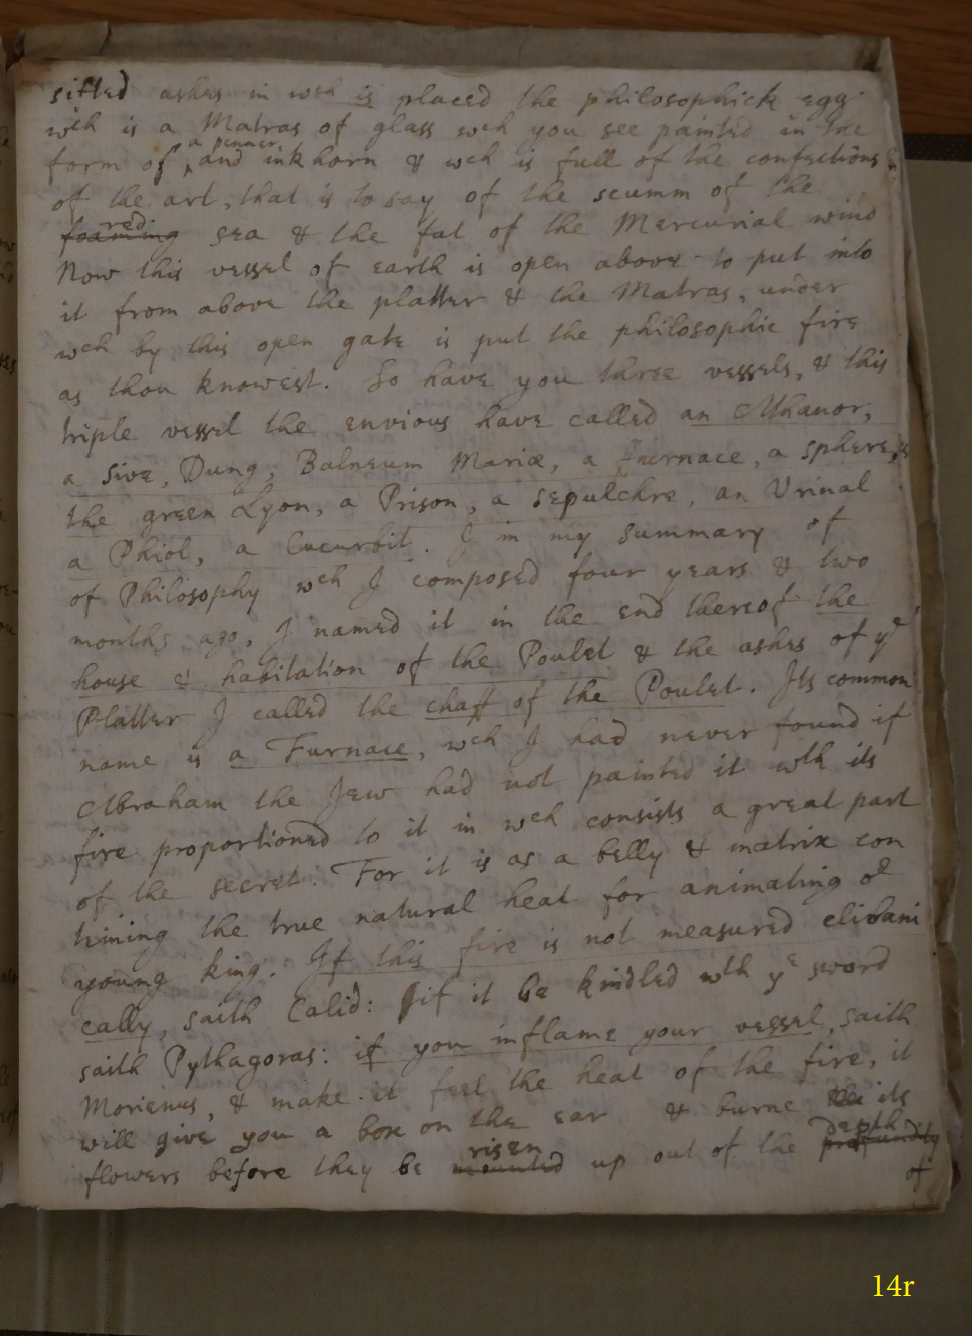 sifted ashes in wch is placed the philosophick egg
wch is a Matras of glass wch you see painted in the
form of a penner and inkhorn & wch is full of the confections
of the art, that is to say of the scumm of the
foaming red sea & the fat of the Mercurial wind
Now this vessel of earth is open above to put into
it from above the platter & the Matras, under
wch by this open gate is put the philosophic fire
as thou knowest. So have you three vessels, & this
triple vessel the envious have called an Athanor,
a sive, Dung, Balneum Mariæ, a furnace, a sphere,
the green Lyon, a Prison, a sepulchre, an Urinal
a Phiol, a Cucurbit. I in my summary of
of Philosophy wch I composed four years & two
months ago, I named it in the end thereof the
house & habitation of the Poulet & the ashes of ye
Platter I called the chaff of the Poulet. Its common
name is a Furnace, wch I had never found if
Abraham the Jew had not painted it wth its
fire proportioned to it in wch consists a great part
of the secret. For it is as a belly & matrix con
teining the true natural heat for animating oe
young king. If this fire is not measured clibani
cally, saith Calid: if it be kindled wth ye sword
saith Pythagoras: if you inflame your vessel, saith
Morienus, & make it feel the heat of the fire, it
will give you a box on the ear & burne its
flowers before they be mounted risen up out of the profundity depth
of
14r